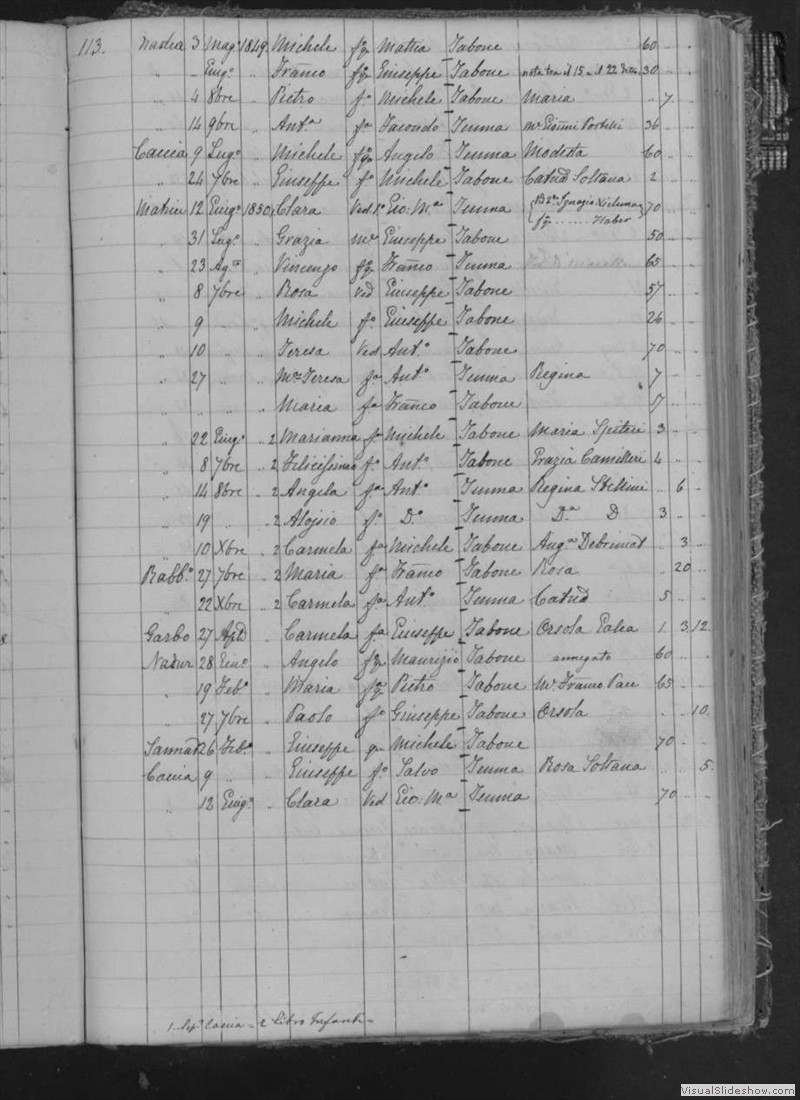 113. Nadur 3 Mag° 1849 Michele fq Mattia Tabone 60 " "
" " Giug° " Franco fq Giuseppe Tabone nota tra il 15 - 22 30 " "
" 4 8bre " Pietro f° Michele Tabone Maria " 7 "
" 14 9bre " Ant.a fa Tumma Mr Portelli 36 " "
Caccia 9 Lug° " Michele fq Angelo Tumma Modesta 60 " "
" 24 7bre " Giuseppe f° Michele Tabone Catad Soltana 2 " "
12 Giug° 1850 Clara Ved. Gio. Ma Tumma Ignazio Xicluna fq ...... Haber 70 " "
" 31 Lug° " Grazia mr Giuseppe Tabone 50 " "
" 23 Ag.to " Vincenzo fq Franco Tumma 65 " "
" 8 7bre " Rosa ved Giuseppe Tabone 57 " "
" 9 " " Michele f° Giuseppe Tabone 26 " "
" 10 " " Teresa Ved. Ant.° Tabone 70 " "
" 27 " " Ma Teresa fa Ant° Tumma Regina 7 " "
" " " " Maria fa Franco Tabone 17 " "
" 22 Giug° 2 Marianna fa Michele Tabone Maria Spiteri 3 " "
" 8 7bre 2 Felicissimo f° Ant.° Tabone Grazia Camilleri 4 " "
" 14 8bre 2 Angela fa Ant° Tumma Regina Stellini " 6 "
" 19 " 2 Aloisio f° D.° Tumma D.a D 3 " "
" 10 Xbre 2 Carmela fa Michele Tabone Ang.a Debrincat " 3 "
Rabb.° 27 7bre 2 Maria fa Franco Tabone Rosa " 20 "
" 22 Xbre 2 Carmela fa Ant.° Tumma Catad 5 " "
Garbo 27 Aple " Carmela fa Giuseppe Tabone Orsola Galea 1 3 12
Nadur 28 Giu° " Angelo fq Maurizio Tabone annegato 60 " "
" 19 Feb° " Maria fq Pietro Tabone Mr Franco Pace 65 " "
" 27 7bre " Paolo f° Giuseppe Tabone Orsola " " 10
Sannat 26 Feb° " Giuseppe q Michele Tabone 70 " "
Caccia 9 " " Giuseppe f° Salvo Tumma Rosa Soltana " " 5
" 12 Giug° " Clara Ved Gio. Ma Tumma 70 " "
1. Caccia = 2 Libro Infanti =
VisualSlideshow.com